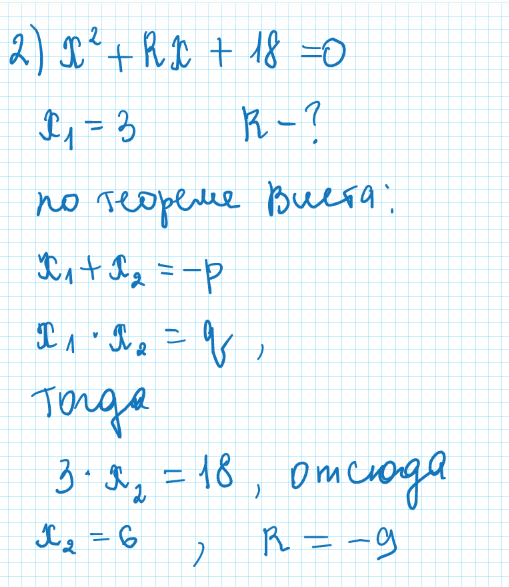 2) x² + Rx + 18 = 0
x₁ = 3 R - ?
по теореме Виета:
x₁ + x₂ = -p
x₁ · x₂ = q,
тогда
3 · x₂ = 18, отсюда
x₂ = 6, R = -9